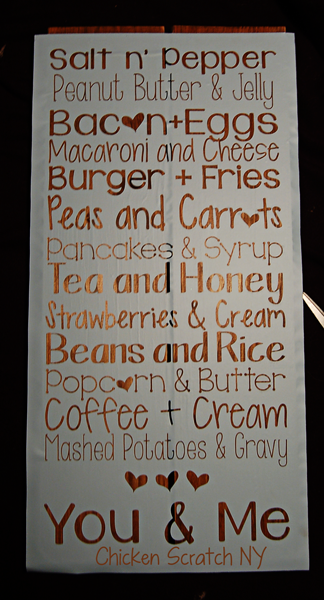 Salt n' Pepper
Peanut Butter & Jelly
Bac♥n+Eggs
Macaroni and Cheese
Burger + Fries
Peas and Carr♥ts
Pancakes & Syrup
Tea and Honey
Strawberries & Cream
Beans and Rice
Popc♥rn & Butter
Coffee + Cream
Mashed Potatoes & Gravy
♥♥♥
You & Me
Chicken Scratch NY